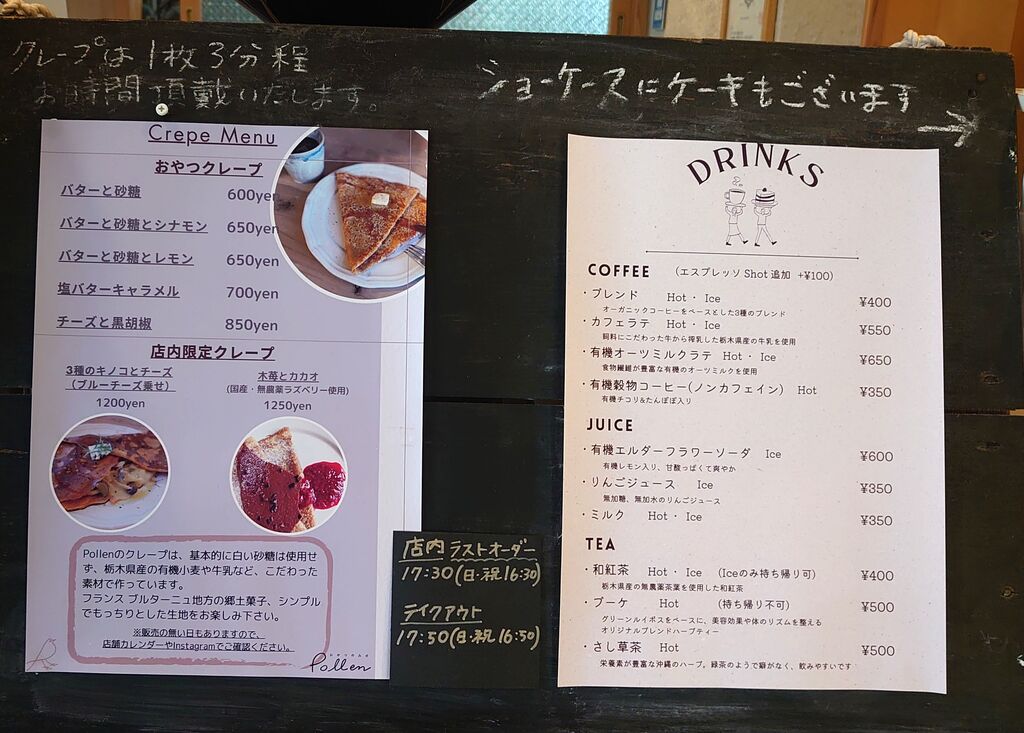 クレープは1枚3分程
お時間頂戴いたします。
ショーケースにケーキもございます
→
Crepe Menu
おやつクレープ
バターと砂糖 600yen
バターと砂糖とシナモン 650yen
バターと砂糖とレモン 650yen
塩バターキャラメル 700yen
チーズと黒胡椒 850yen
店内限定クレープ
3種のキノコとチーズ
（ブルーチーズ乗せ）
1200yen
木苺とカカオ
(国産・無農薬ラズベリー使用)
1250yen
Pollenのクレープは、基本的に白い砂糖は使用せ
ず、栃木県産の有機小麦や牛乳など、こだわった
素材で作っています。
フランス ブルターニュ地方の郷土菓子、シンプル
でもっちりとした生地をお楽しみ下さい。
※販売の無い日もありますので、
店舗カレンダーやInstagramでご確認ください。
Pollen
店内 ラストオーダー
17:30(日・祝16:30)
テイクアウト
17:50(日・祝16:50)
DRINKS
COFFEE （エスプレッソ Shot 追加 +¥100）
・ブレンド Hot・Ice ¥400
オーガニックコーヒーをベースとした3種のブレンド
・カフェラテ Hot・Ice ¥550
飼料にこだわった牛から搾乳した栃木県産の牛乳を使用
・有機オーツミルクラテ Hot・Ice ¥650
食物繊維が豊富な有機のオーツミルクを使用
・有機穀物コーヒー(ノンカフェイン) Hot ¥350
有機チコリ&たんぽぽ入り
JUICE
・有機エルダーフラワーソーダ Ice ¥600
有機レモン入り、甘酸っぱくて爽やか
・りんごジュース Ice ¥350
無加糖、無加水のりんごジュース
・ミルク Hot・Ice ¥350
TEA
・和紅茶 Hot・Ice （Iceのみ持ち帰り可） ¥400
栃木県産の無農薬茶葉を使用した和紅茶
・ブーケ Hot （持ち帰り不可） ¥500
グリーンルイボスをベースに、美容効果や体のリズムを整える
オリジナルブレンドハーブティー
・さし草茶 Hot ¥500
栄養素が豊富な沖縄のハーブ。緑茶のようで癖がなく、飲みやすいです